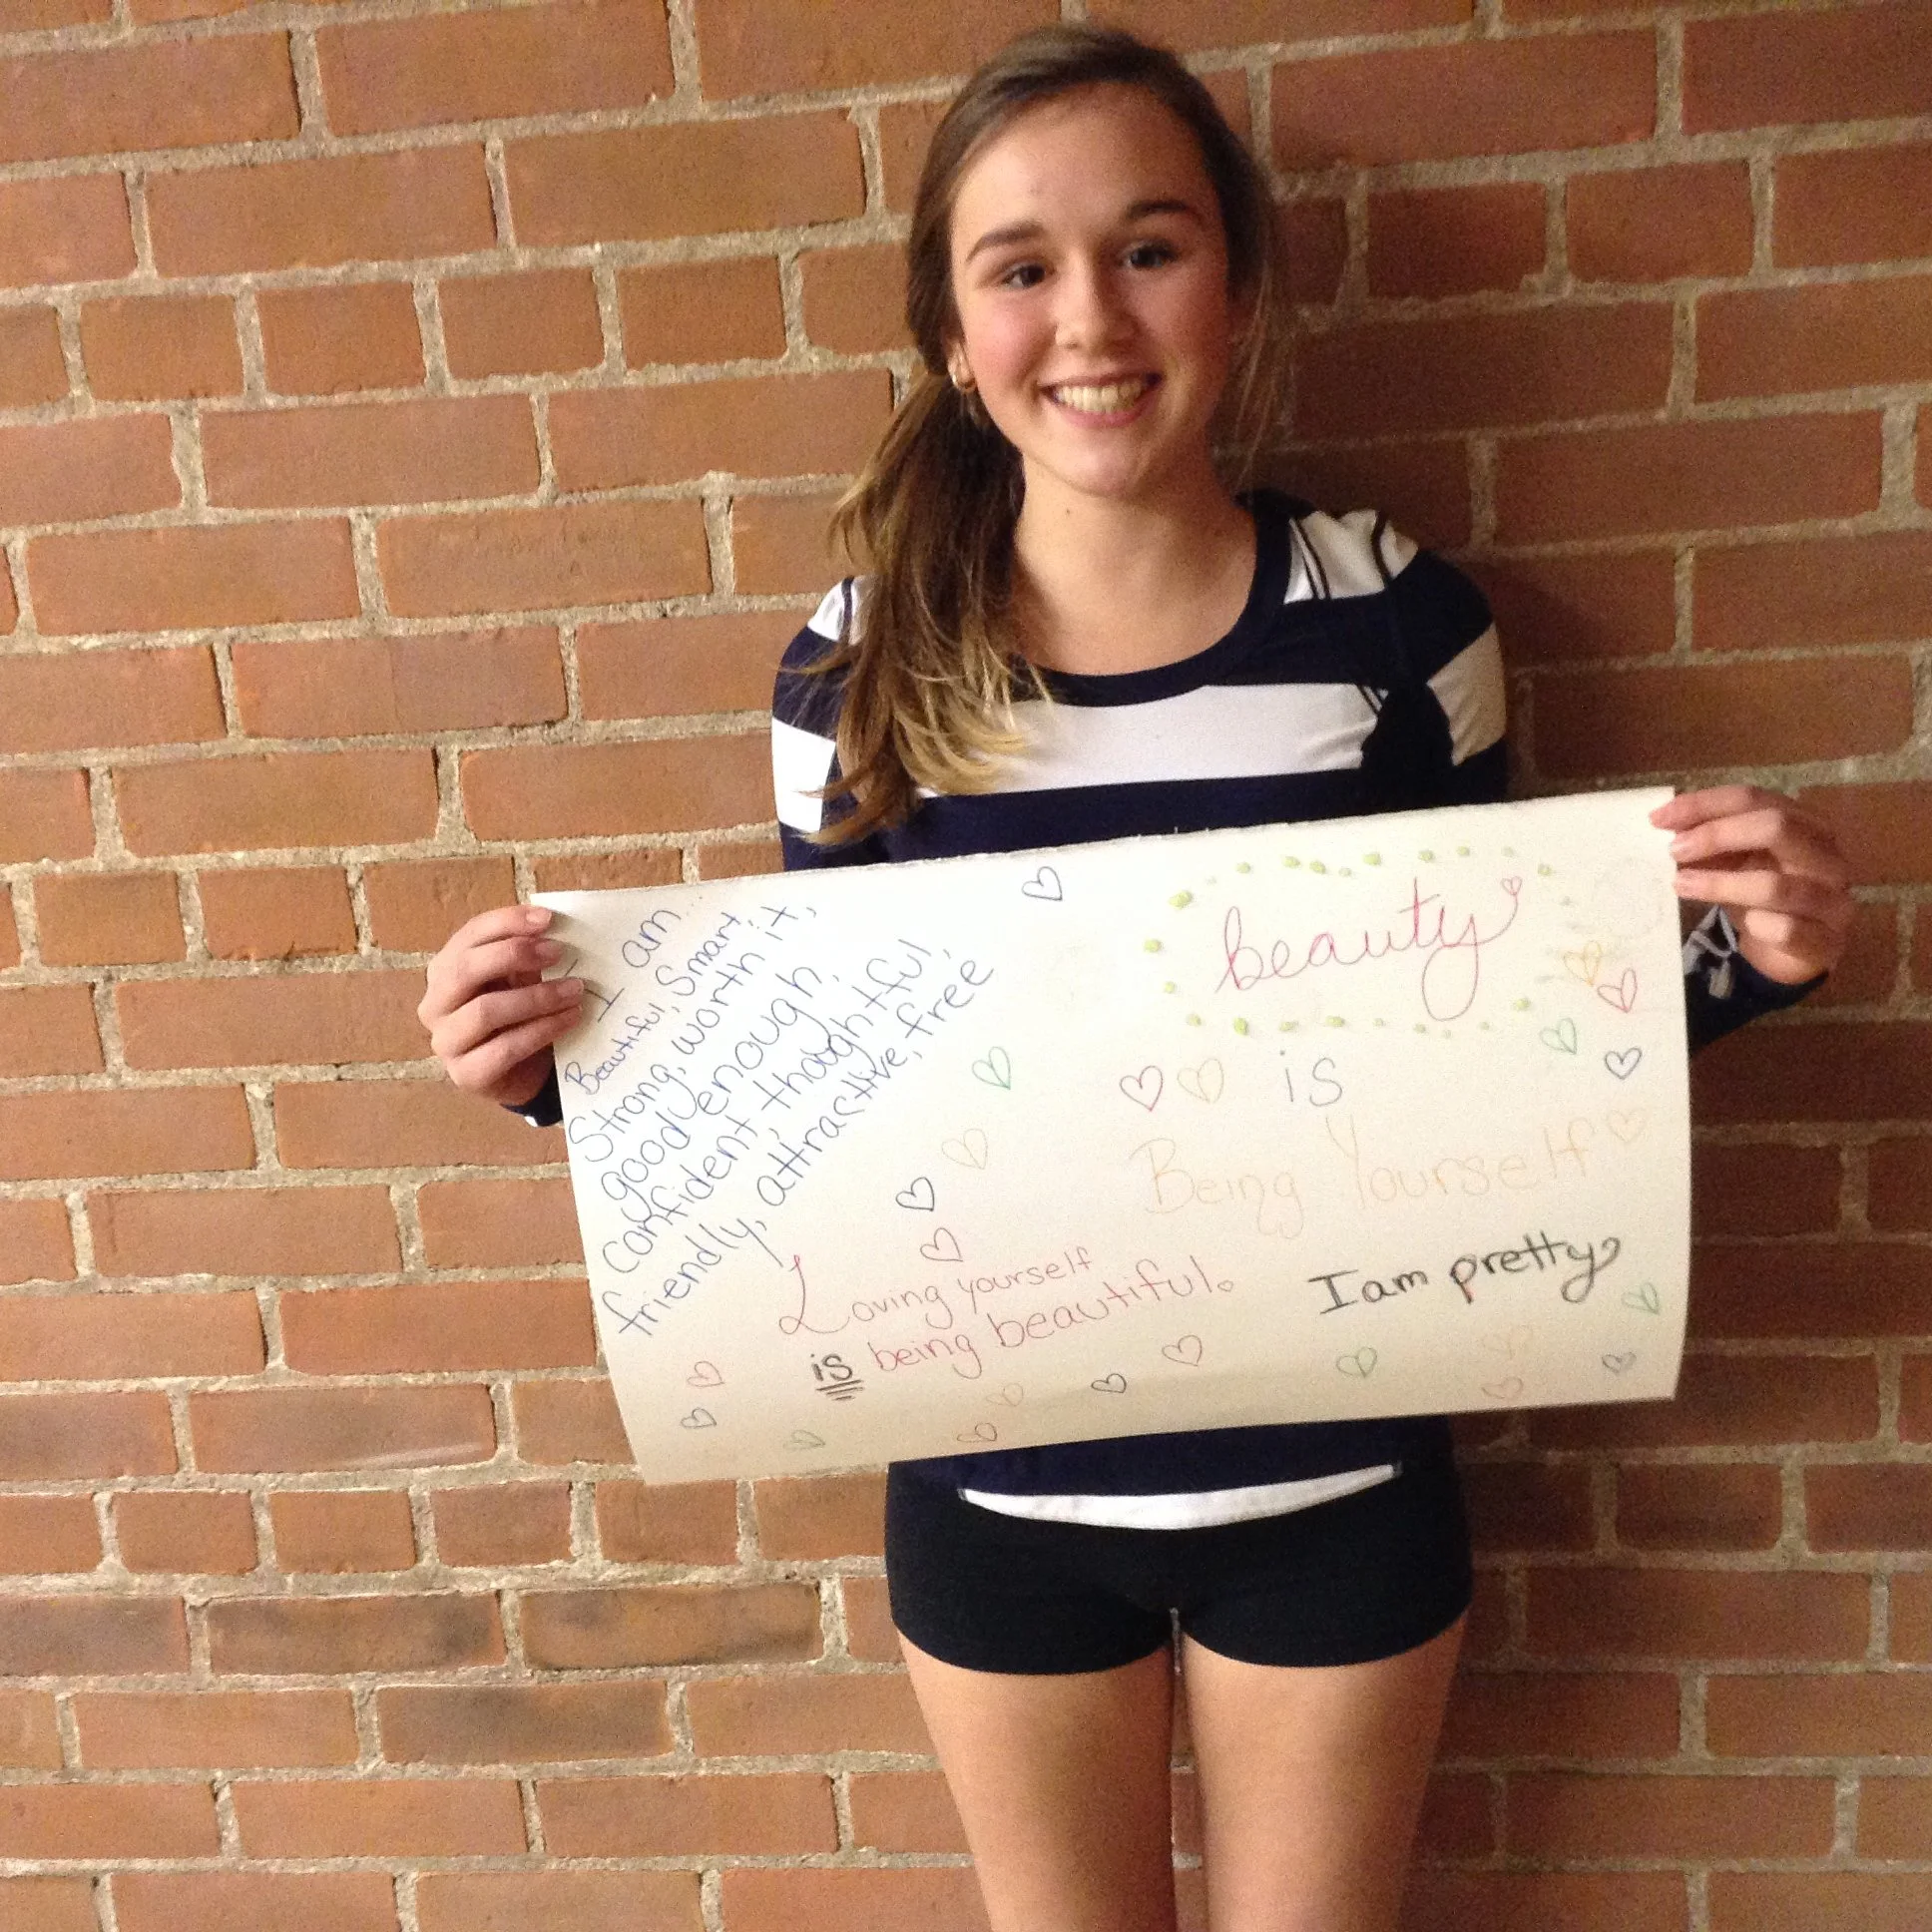 I am...
Beautiful, Smart,
Strong, worth it,
good enough,
Confident, thoughtful,
friendly, attractive, free
beauty
is
Being Yourself
Loving yourself
is being beautiful.
I am pretty